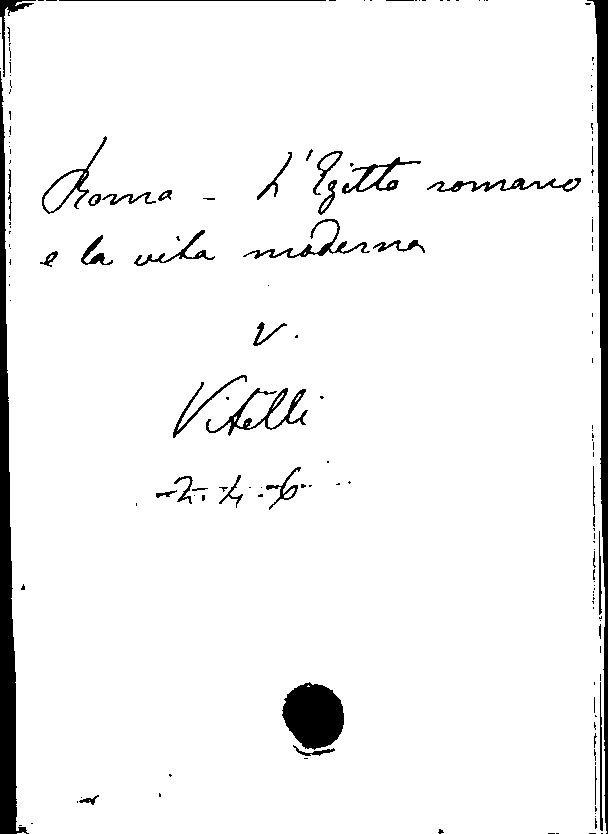 Roma - L'Egitto romano
e la vita moderna
v.
Vitelli
2. 4. 6